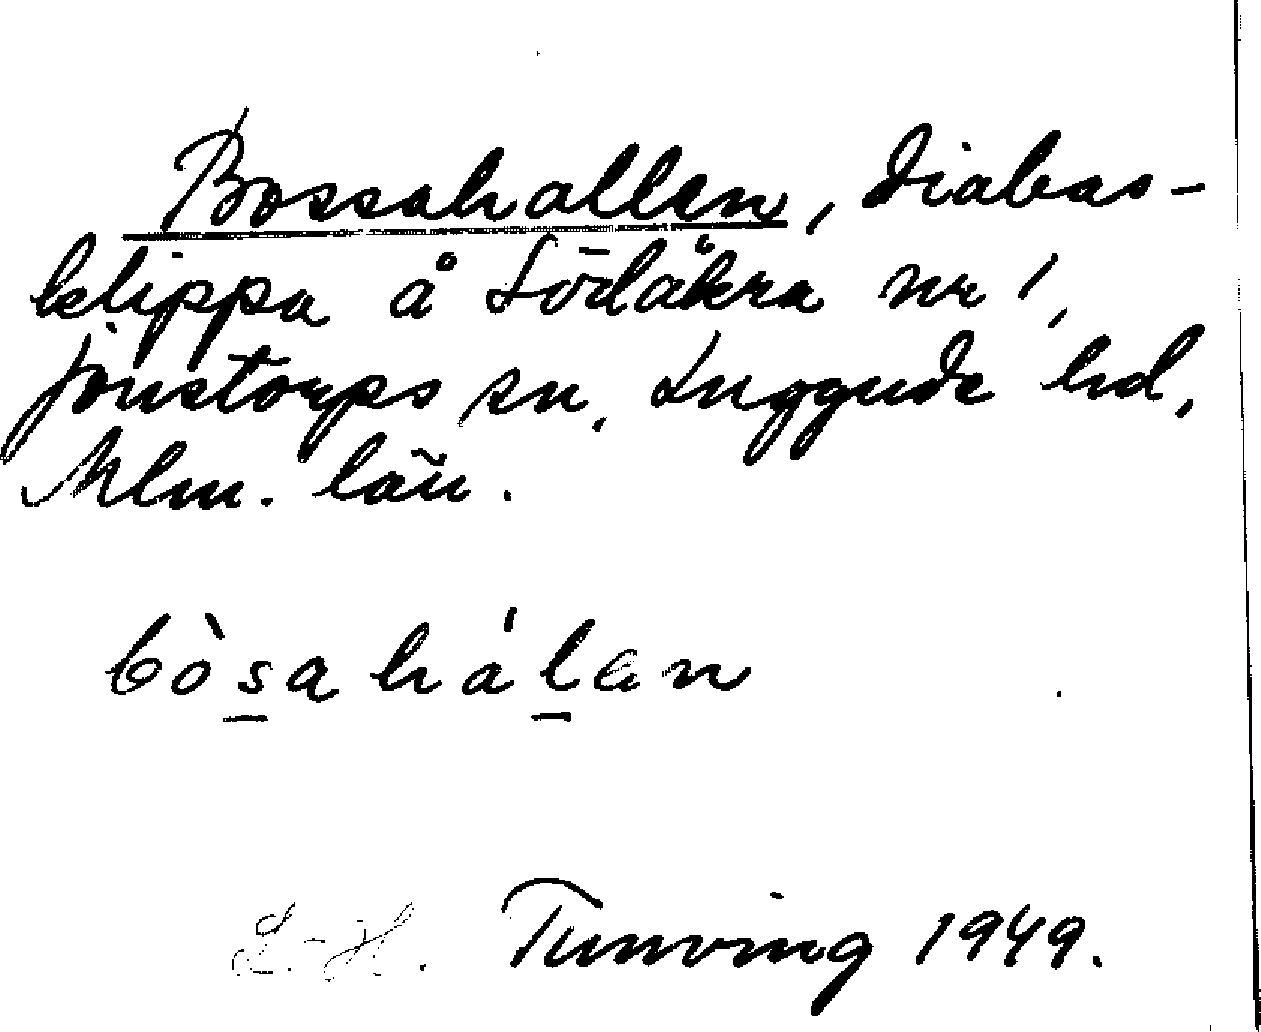 Bossahallen, diabas-
klippa å Södåkra nr 1,
Jonstorps sn, Luggude hd,
Mlm. län.
bòsahálan
L.-H. Tunving 1949.